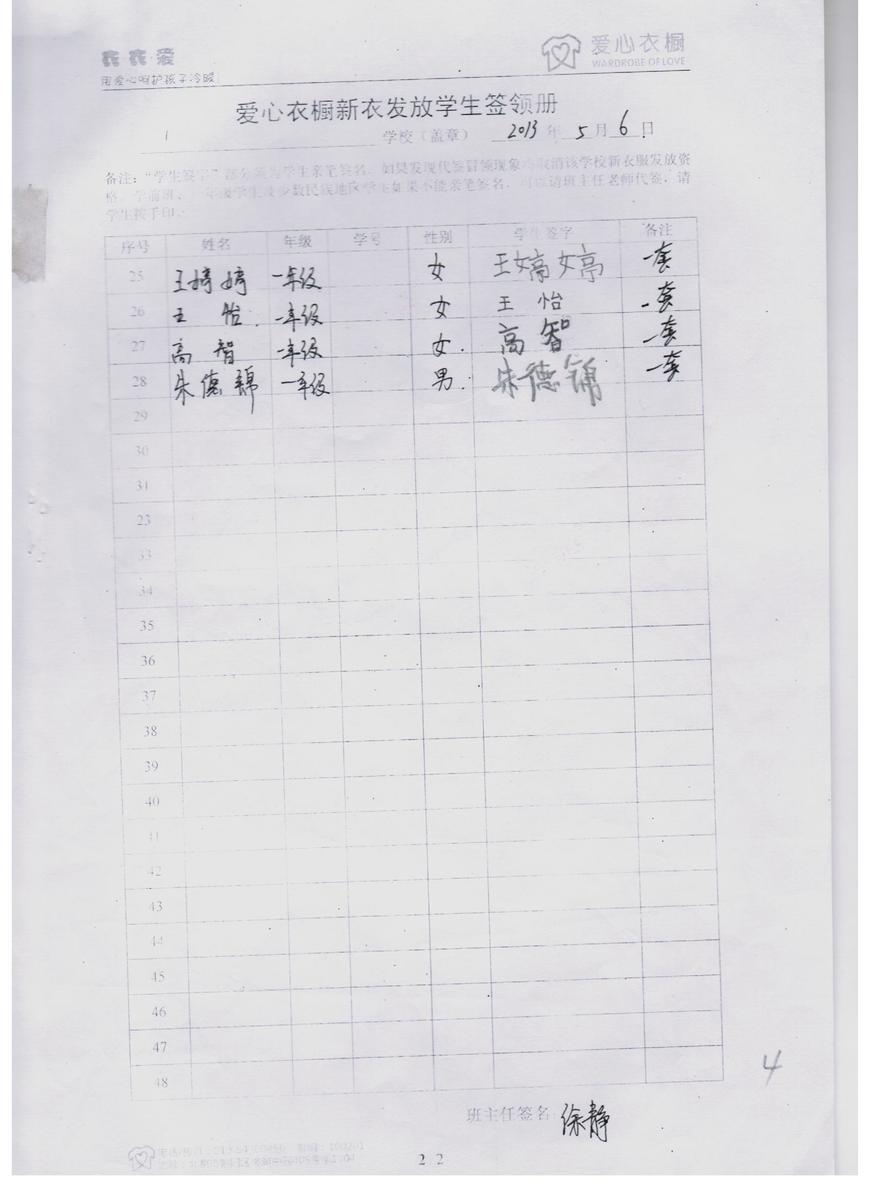 衣衣·爱
用爱心呵护孩子冷暖
爱心衣橱
WARDROBE OF LOVE
爱心衣橱新衣发放学生签领册
学校（盖章） 2013 年 5 月 6 日
备注：“学生签字”部分须为学生亲笔签名，如果发现代签冒领现象将取消该学校新衣服发放资
格。学前班、一年级学生及少数民族地区学生如果不能亲笔签名，可以请班主任老师代签，请
学生按手印。
序号 姓名 年级 学号 性别 学生签字 备注
25 王婷婷 一年级 女 王婷婷 一套
26 王 怡 一年级 女 王 怡 一套
27 高 智 一年级 女 高 智 一套
28 朱德锦 一年级 男 朱德锦 一套
29
30
31
23
33
34
35
36
37
38
39
40
41
42
43
44
45
46
47
48
4
班主任签名：徐静
2 2